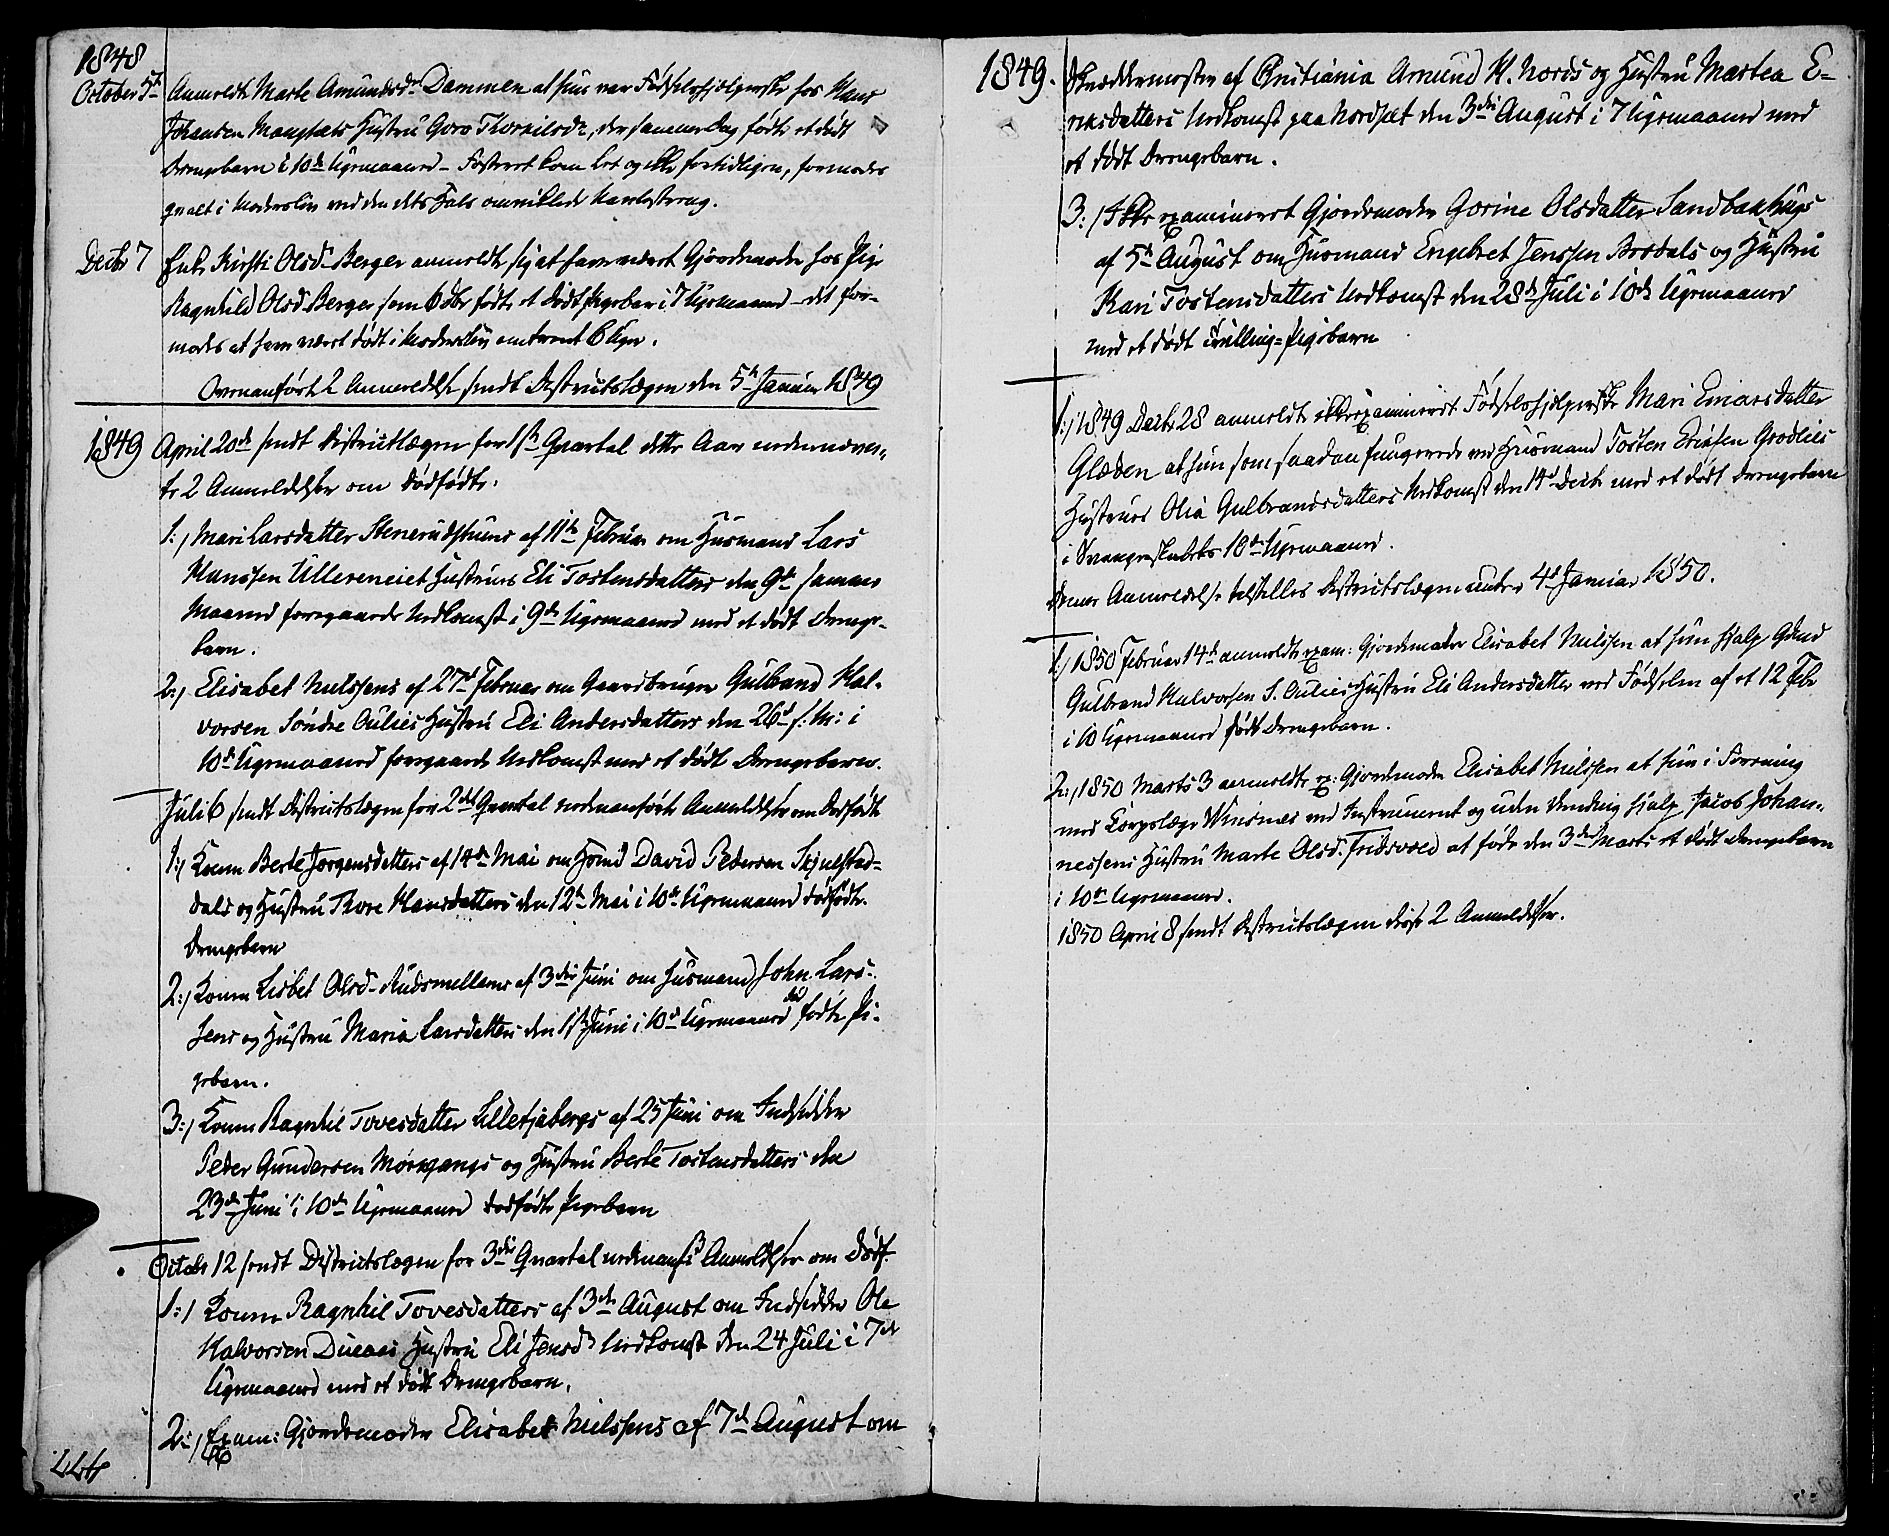 1848
October 5te Anmeldte Marte Amundsdr Dammen at hun var Fødselshjelperske hos Hans
Johansen Hustru Goro Thorkilsdr, der samme Dag fødte et dødt
Drengebarn i 10de Ugemaaned - Fosteret kom let og ikke fortidligen, formodes
qvalt i Moderliv ved den dets Hals omviklede Navlestreng.
Decbr 7 Enke Kirsti Olsd. Berger anmeldte sig at have været Gjordemoder hos Pige
Ragnhild Olsd. Berger som 6 dbr fødte et dødt Pigebarn i 7 Ugemaaned - det for-
modes at have været dødt i Moderliv omtrent 6 Uger.
Ovenanførte 2 Anmeldelser sendt Districtslægen den 5te Januar 1849
1849 April 20de sendt Districtslægen for 1ste Quartal dette Aar nedennævn-
te 2 Anmeldelser om Dødfødte:
1:, Mari Larsdatter Stenerudstuens af 11te Februar om Husmand Lars
Hanssen Ullereneiet Hustrues Eli Tostensdatters den 9de samme
Maaned foregaaede Nedkomst i 9de Ugemaaned med et dødt Drenge-
barn.
2:, Elisabet Nielssens af 27de Februar om Gaardbruger Gulbrand Hal-
vorsen Søndre Oulies Hustru Eli Andersdatters den 26de s: M: i
10de Ugemaaned foregaaede Nedkomst med et dødt Drengebarn.
Juli 6 sendt Districtslægen for 2det Quartal nedenanførte Anmeldelser om Dødfødte
1:, Konen Berte Jorgensdatters af 14de Mai om Hsmd David Pedersen Skjulstad-
dals og Hustru Thore Hansdatters den 12te Mai i 10de Ugemaaned dødfødte
Drengebarn
2:, Konen Lisbet Olsd. Rudsmellems af 3die Juni om Husmand John Lars-
sens og Hustru Maria Larsdatters den 1ste Juni i 10de Ugemaaned død fødte Pi-
gebarn.
3:, Konen Ragnhil Tovesdatter Lilletjabergs af 25 Juni om Indsidder
Peder Gundersen Mørkgangs og Hustru Berte Tostensdatters den
23de Juni i 10de Ugemaaned dødfødte Pigebarn
Octobr 12 sendt Districtslægen for 3die Quartal nedenanf. 3 Anmeldelser om Dødf.
1:, Konen Ragnhil Tovesdatters af 3die August om Indsidder Ole
Halvorsen Hustru Eli Jensdrs Nedkomst den 24 Juli i 7de
Ugemaaned med et dødt Drengebarn.
2:, Exam: Gjordemoder Elisabet Nielssens af 7de August om
1849. Skræddermester af Christiania Amund H. Nords og Hustru Martea E-
riksdatters Nedkomst paa Nordset den 3die August i 7 Ugemaaned med
et dødt Drengebarn.
3:, Ikke examineret Gjordemoder Gorine Olsdatter Sandbakhugs
af 5te August om Husmand Engebret Jenssen Brodals og Hustru
Kari Tostensdatters Nedkomst den 28de Juli i 10de Ugemaaned
med et dødt Tvilling-Pigebarn
1:, 1849 Decbr 28 anmeldte ikke examineret Fødselshjelperske Mari Einarsdatter
Gladen at hun som saadan fungerede ved Husmand Tosten Eriksen Grodlies
Hustrues Olia Gulbrandsdatters Nedkomst den 14de Decbr med et dødt Drengebarn
i Svangerskabets 10de Ugemaaned.
Denne Anmeldelse tilstilles Districtslægen under 4de Januar 1850.
1:, 1850 Februar 14de anmeldte exam: Gjordemoder Elisabet Nielssen at hun hjalp Gdmd
Gulbrand Halvorsen S. Oulies Hustru Eli Andersdatter ved Fødselen af et 12 Febr
i 10 Ugemaaned født Drengebarn.
2:, 1850 Marts 3 anmeldte ex: Gjordemoder Elisabet Nielssen at hun i Forening
med Corpslæge Winsnes ved Instrument og uden Vending hjalp Jacob Johan-
nessens Hustru Marte Olsd. Fridsvold at føde den 3die Marts et dødt Drengebarn
i 10de Ugemaaned.
1850 April 8 sendt Districtslægen disse 2 Anmeldelser.